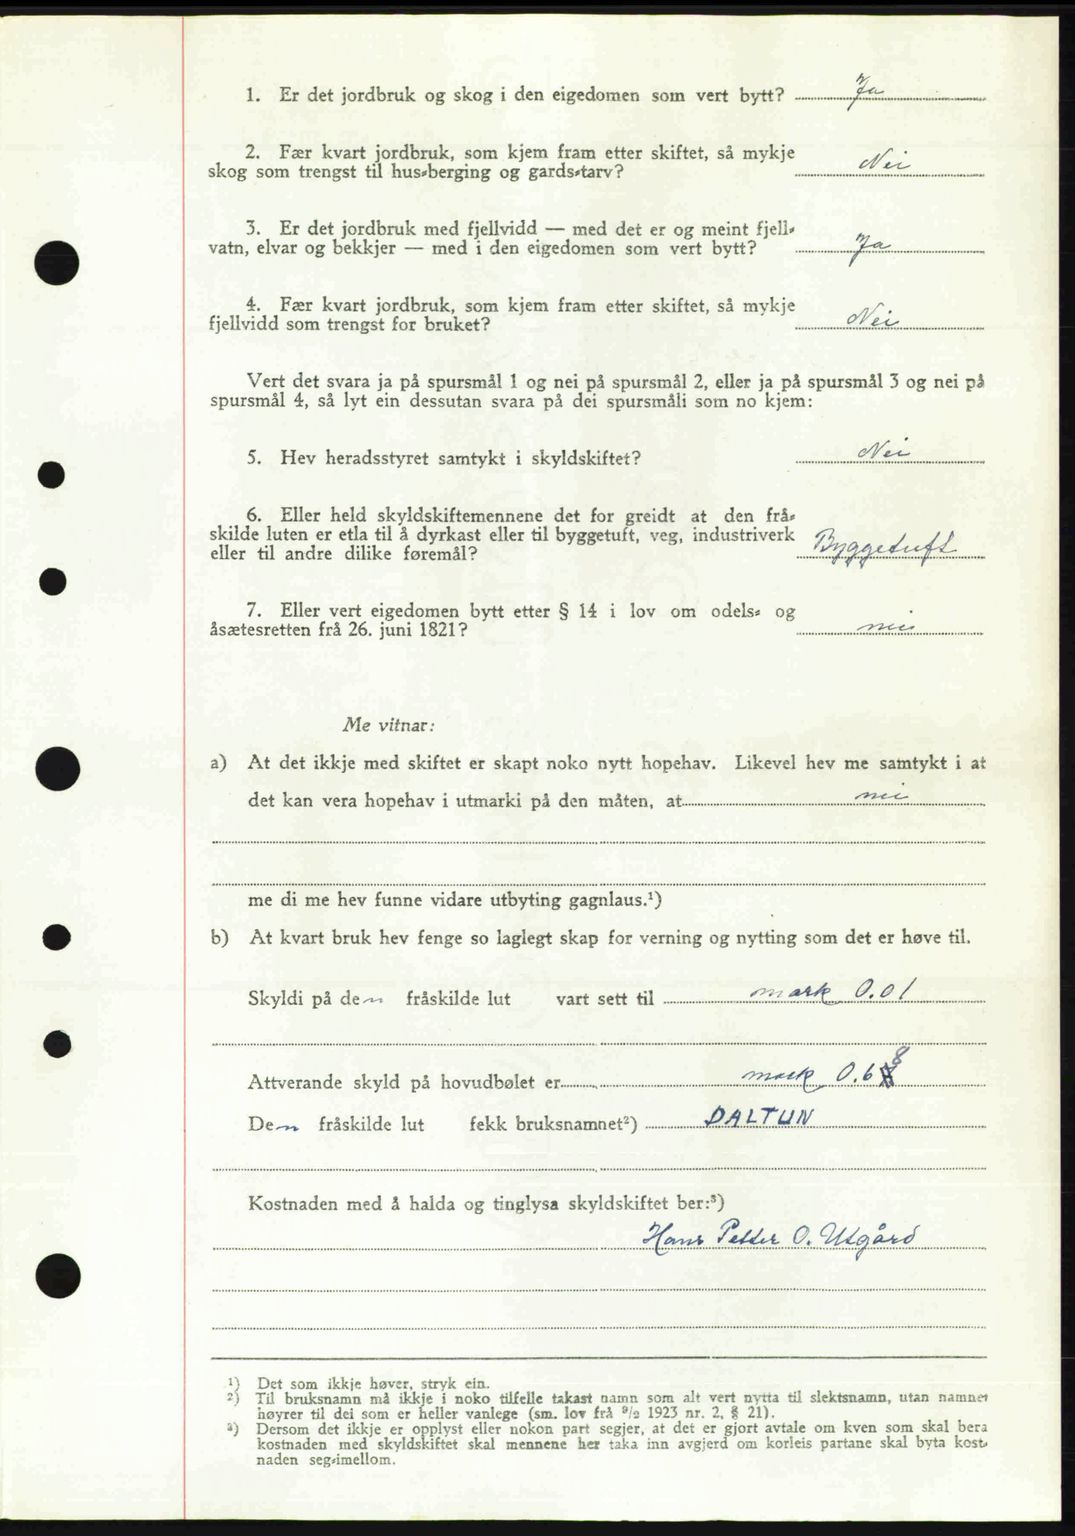 1. Er det jordbruk og skog i den eigedomen som vert bytt? Ja
2. Fær kvart jordbruk, som kjem fram etter skiftet, så mykje
skog som trengst til hus-berging og gards-tarv? Nei
3. Er det jordbruk med fjellvidd — med det er og meint fjell-
vatn, elvar og bekkjer — med i den eigedomen som vert bytt? Ja
4. Fær kvart jordbruk, som kjem fram etter skiftet, så mykje
fjellvidd som trengst for bruket? Nei
Vert det svara ja på spursmål 1 og nei på spursmål 2, eller ja på spursmål 3 og nei på
spursmål 4, så lyt ein dessutan svara på dei spursmåli som no kjem:
5. Hev heradsstyret samtykt i skyldskiftet? Nei
6. Eller held skyldskiftemennene det for greidt at den frå-
skilde luten er etla til å dyrkast eller til byggetuft, veg, industriverk
eller til andre dilike føremål? Byggetuft
7. Eller vert eigedomen bytt etter § 14 i lov om odels- og
åsætesretten frå 26. juni 1821? nei
Me vitnar:
a) At det ikkje med skiftet er skapt noko nytt hopehav. Likevel hev me samtykt i at
det kan vera hopehav i utmarki på den måten, at nei
me di me hev funne vidare utbyting gagnlaus.¹)
b) At kvart bruk hev fenge so laglegt skap for verning og nytting som det er høve til.
Skyldi på den fråskilde lut vart sett til mark 0.01
Attverande skyld på hovudbølet er mark 0.68
Den fråskilde lut fekk bruksnamnet²) DALTUN
Kostnaden med å halda og tinglysa skyldskiftet ber:³)
Hans Petter O. Utgård
¹) Det som ikkje høver, stryk ein.
²) Til bruksnamn må ikkje i noko tilfelle takast namn som alt vert nytta til slektsnamn, utan namnet
høyrer til dei som er heller vanlege (sm. lov frå ⁹/₂ 1923 nr. 2, § 21).
³) Dersom det ikkje er opplyst eller nokon part segjer, at det er gjort avtale om kven som skal bera
kostnaden med skyldskiftet skal mennene her taka inn avgjerd om korleis partane skal byta kost-
naden seg-imellom.